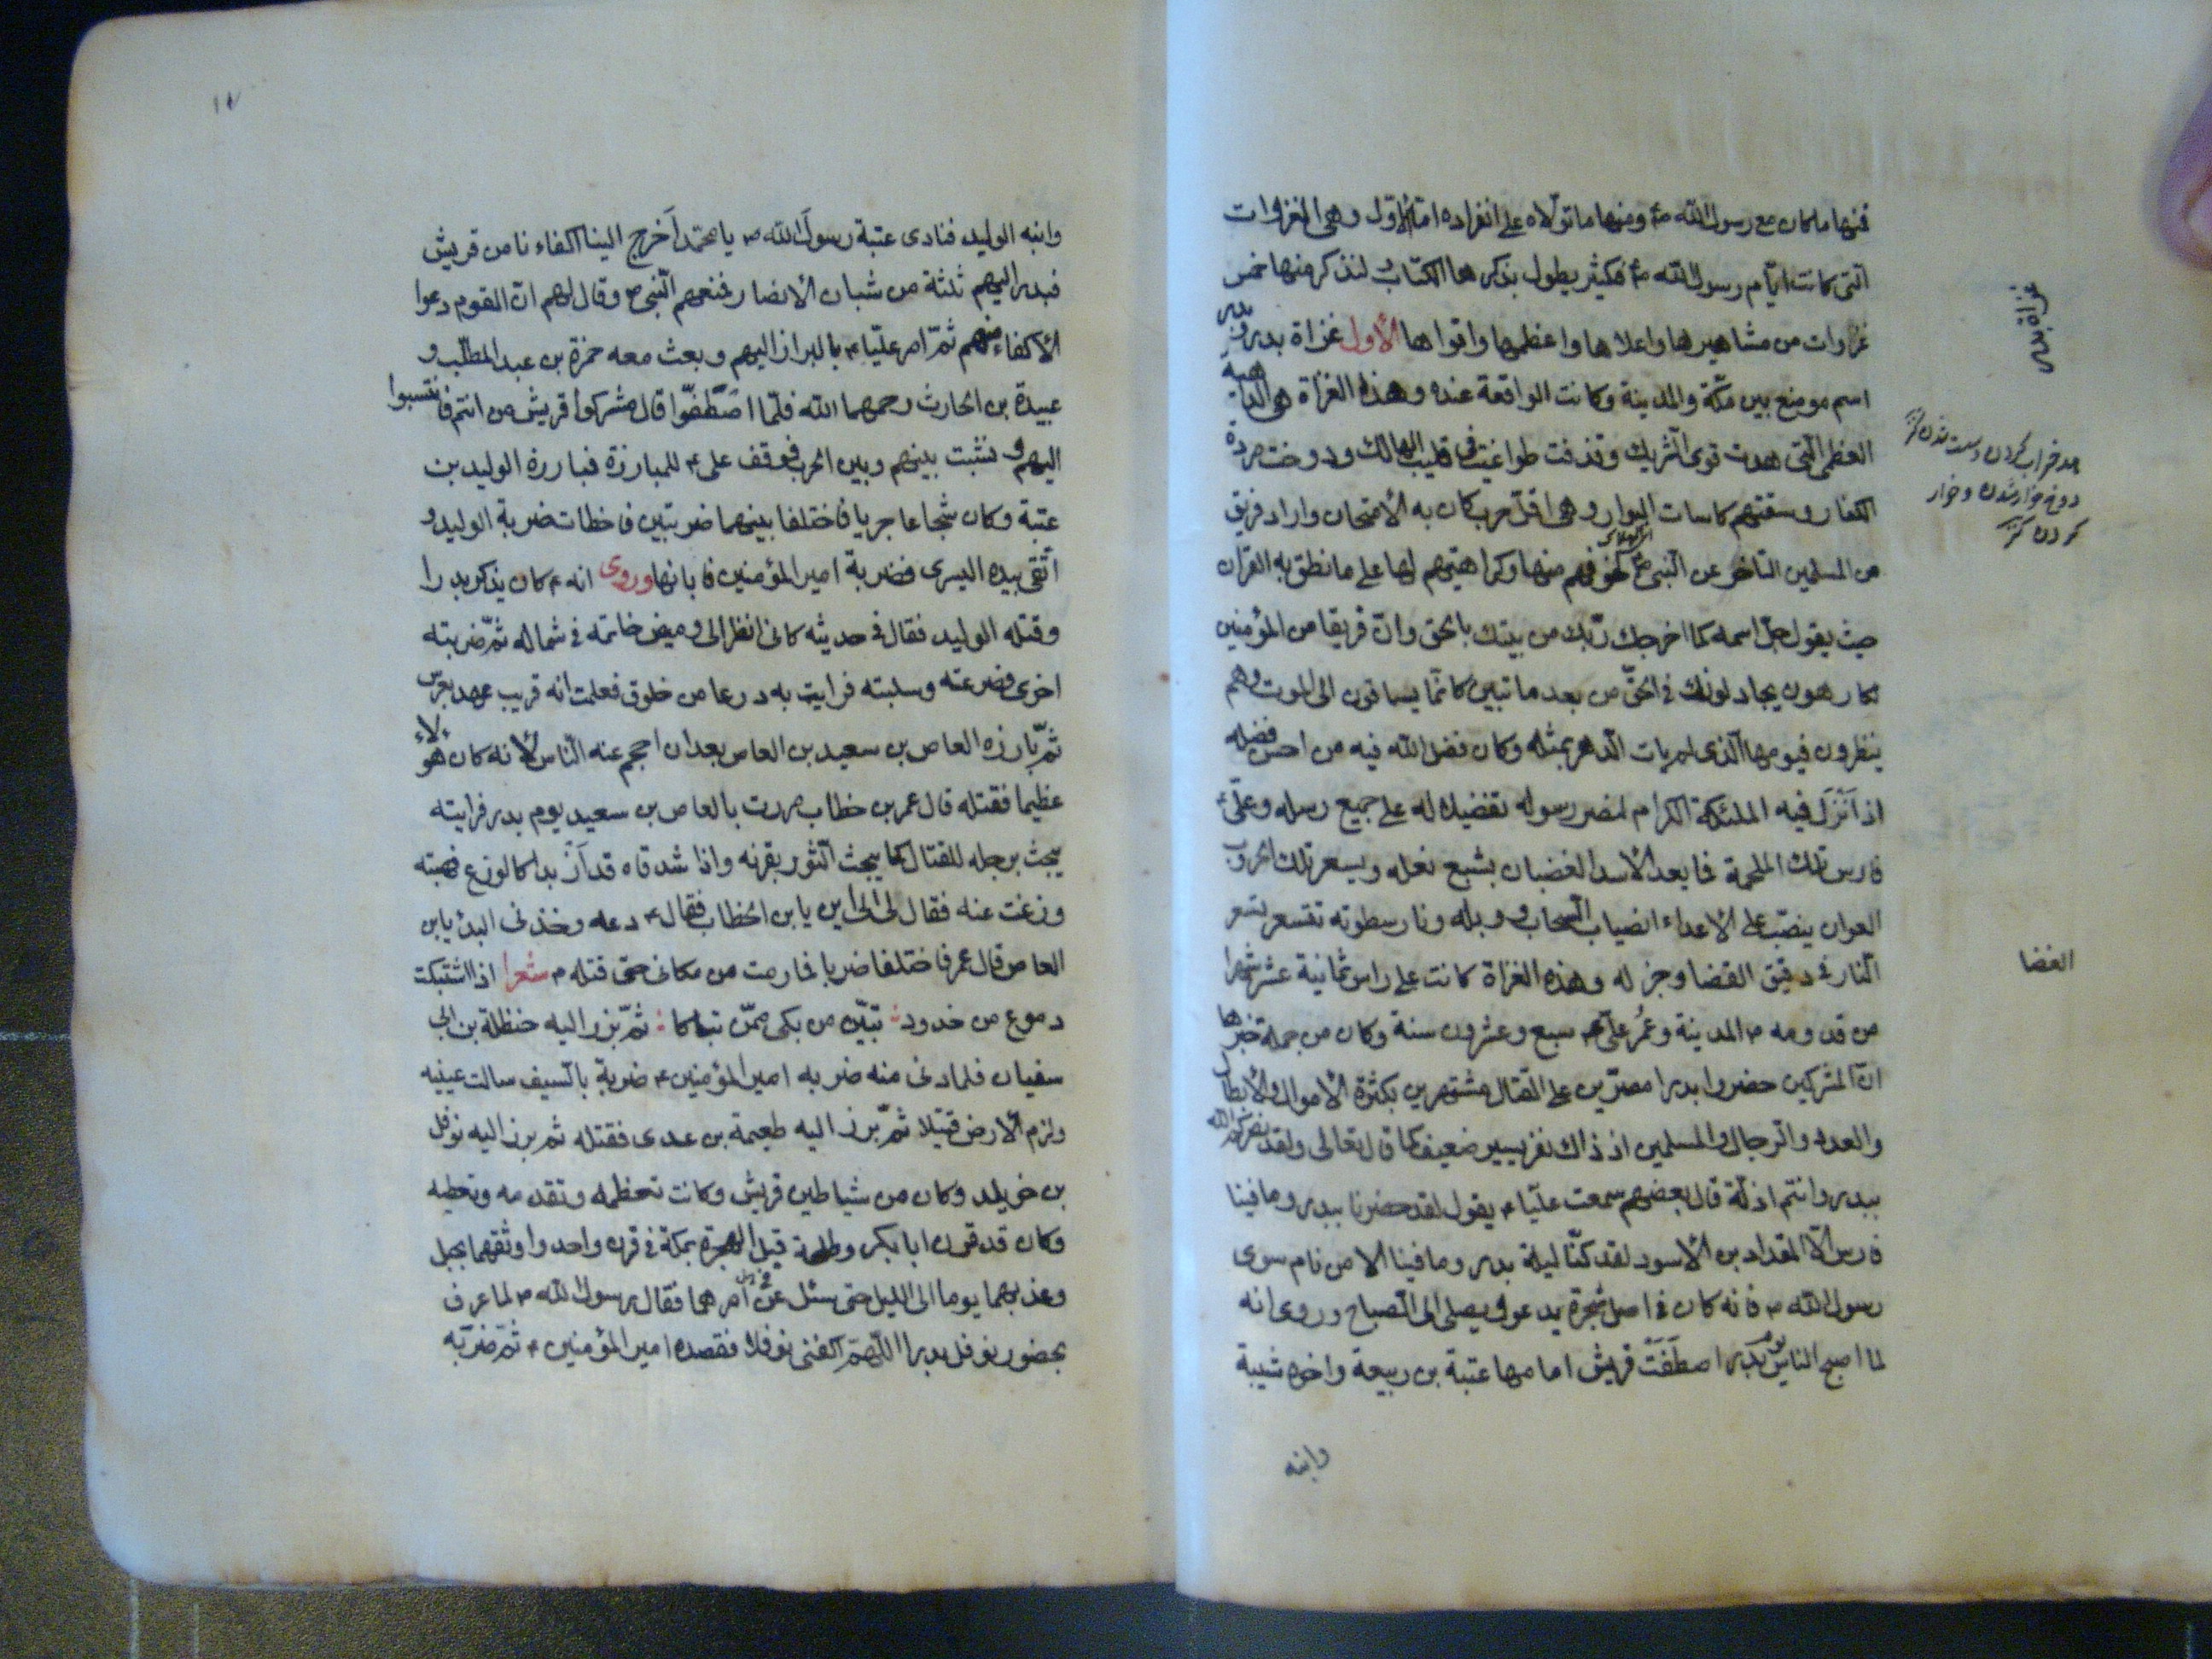 فمنها ما كان مع رسول الله ص ومنها ما تولاه على انفراده اما الاول وهى الغزوات
التى كانت ايام رسول الله ص فكثير يطول بذكرها الكتاب لنذكر منها خمس
غزوات من مشاهيرها واعلاها واعظمها واقواها الأول غزاة بدر وبدر
اسم موضع بين مكة والمدينة وكانت الواقعة عنده وهذه الغزاة هى الداهية
العظمى التى هدت قوى الشرك وقذفت طواغيته فى قليب الهالك ودوخت مردة
الكفار وسقتهم كاسات البوار وهى اول حرب كان به الأمتحان واراد فريق
من المسلمين التاخر عن النبى ص لخوفهم منها وكراهتهم لها على ما نطق به القران
حيث يقول جل اسمه كما اخرجك ربك من بيتك بالحق وان فريقا من المؤمنين
لكارهون يجادلونك فى الحق من بعد ما تبين كانما يساقون الى الموت وهم
ينظرون فيومها الذى لم يات الدهر بمثله وكان فضل الله فيه من احسن فضله
اذ اَنْزَلَ فيه الملئكة الكرام لنصر رسوله تفضيلا له على جميع رسله وعلى ع
فارس تلك الملحمة فما يعد الأسد الغضبان بشسع نعله ويسعر تلك الحروب
العوان ينصب على الاعداء انصباب السحاب ووبله ونار سطوته تتسعر تسعر
النار فى دقيق الغضا وجزله وهذه الغزاة كانت على راس ثمانية عشر شهرا
من قدومه ص المدينة وعُمرُ على ع سبع وعشرون سنة وكان من جملة خبرها
ان المشركين حضروا بدرا مصرين على القتال مشتهرين بكثرة الأموال والأبطال
والعدد والرجال والمسلمين اذ ذاك نفر يسير ضعيف كما قال تعالى ولقد نصركم الله
ببدر وانتم اذلة قال بعضهم سمعت عليا ع يقول لقد حضرنا ببدر وما فينا
فارس الا المقداد بن الأسود لقد كنا ليلة بدر وما فينا الا من نام سوى
رسول الله ص فانه كان فى اصل شجرة يدعو ويصلى الى الصباح وروى انه
لما اصبح الناس يوم بدر اصطَفَتْ قريش امامها عتبة بن ربيعة واخوه شيبة
وابنه
غزاة بدر
هد خراب كردن
دوخ خوار شدن وخوار
كردن كنز
الغضا
١٧
وابنه الوليد فنادى عتبة رسولَ الله ص يا محمد اَخرج الينا اكفاءنا من قريش
فبدر اليهم ثلثة من شبان الأنصار فمنعهم النبى ص وقال لهم ان القوم دعوا
الأكفاء منهم ثمّ امر عليّا ع بالبراز اليهم وبعث معه حمزة بن عبد المطلب و
عبيدة بن الحارث رحمهما الله فلما اصْطَفّوا قال مشركوا قريش من انتم فانتسبوا
اليهم ونشبت بينهم وبين الحرب فوقف على ع للمبارزة فبارزه الوليد بن
عتبة وكان شجاعا جريا فاختلفا بينهما ضربتين فاخطات ضربة الوليد و
اتقى بيده اليسرى فضربه امير المؤمنين فابانها وروى انه ع كان يذكر بدرا
وقتله الوليد فقال فى حديثه كانى انظر الى وميض خاتمه فى شماله ثمّ ضربته
اخرى فصرعته وسلبته فرايت به درعا من خلوق فعلمت انه قريب عهد بعرس
ثمّ بارزه العاص بن سعيد بن العاص بعد ان احجم عنه الناس لأنه كان هولاء
عظيما فقتله قال عمر بن خطاب مررت بالعاص بن سعيد يوم بدر فرايته
يبحث برجله للقتال كما يبحث الثور بقرنه واذا شدقاه قد اَزْبدا كالوزع فهبته
وزغت عنه فقال لى الى اين يا بن الخطاب فقال ع دعه وخذنى اليك يا بن
العاص قال عمر فاختلفا ضربا فما رمت من مكانى حتى قتله ع شعرا اذا اشتبكت
دموع من خدود تبيّن من بكى ممّن تباكا ثمّ برز اليه حنظلة بن ابى
سفيان فلما دنى منه ضربه امير المؤمنين ع ضربة بالسيف سالت عينيه
ولزم الأرض قتيلا ثمّ برز اليه طعيمة بن عدى فقتله ثم برز اليه نوفل
بن خويلد وكان من شياطين قريش وكانت تعظمه وتقدمه وتعطيه
وكان قد قرن ابا بكر وطلحة قبل الهجرة بمكة فى قرن واحد واوثقهما بحبل
وعذبهما يوما الى الليل حتى سئل عن امرهما فقال رسول الله ص لما عرف
بحضور نوفل بدرا اللّهمّ اكفنى نوفلا فقصده امير المؤمنين ع ثمّ ضربه